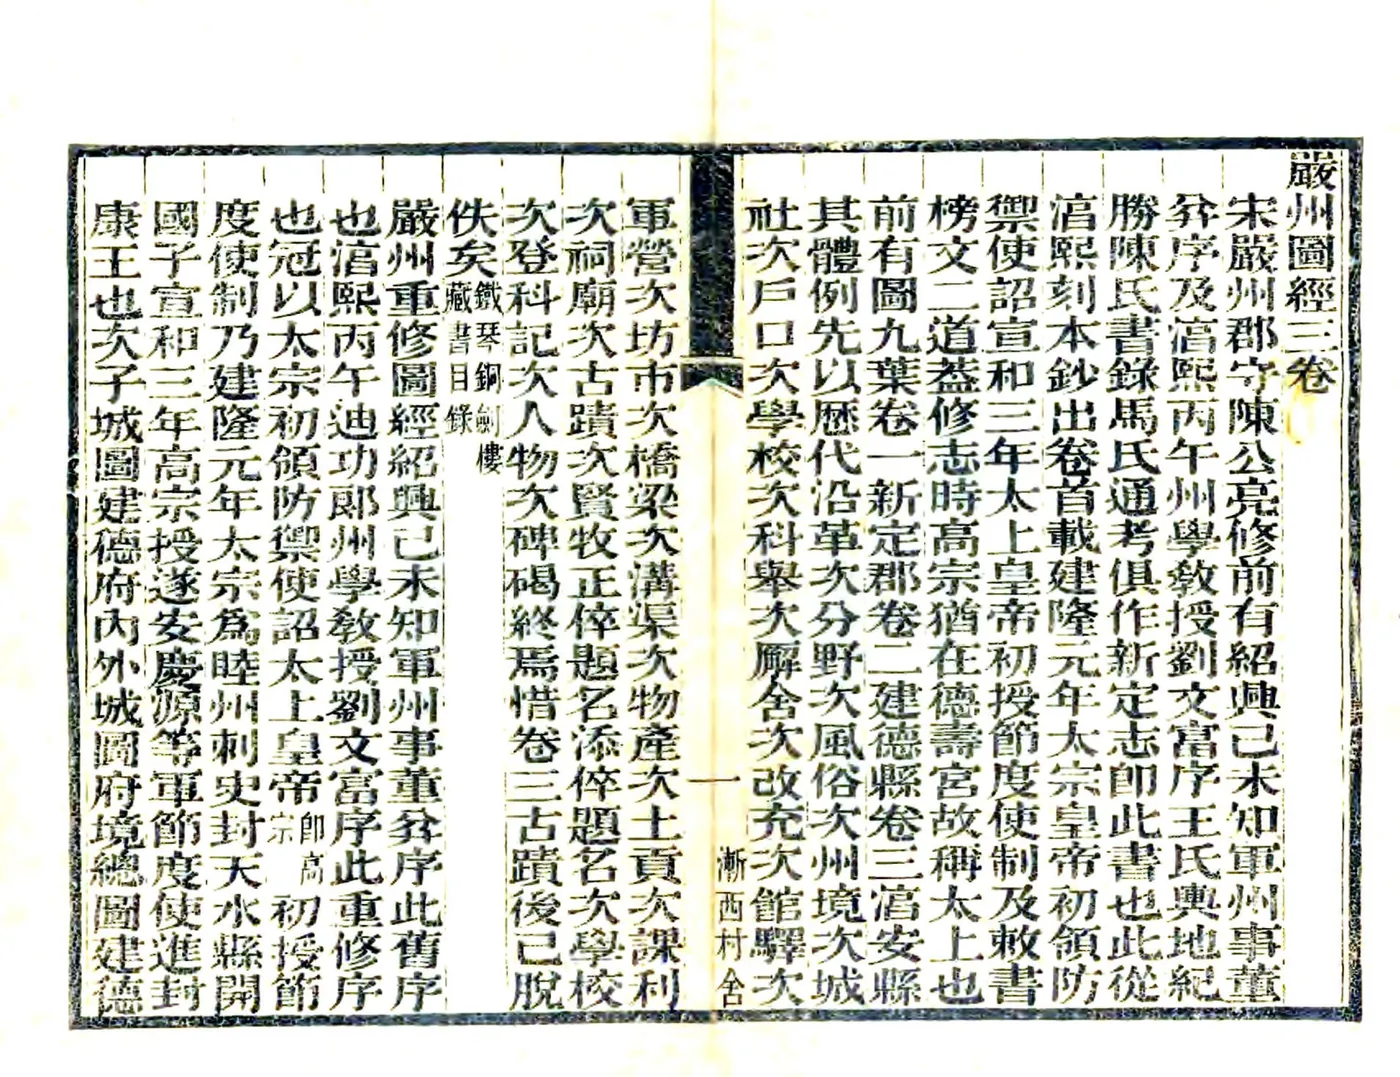 嚴州圖經三卷
宋嚴州郡守陳公亮修前有紹興己未知軍州事董
弅序及湻熙丙午州學敎授劉文富序王氏輿地紀
勝陳氏書錄馬氏通考俱作新定志卽此書也此從
湻熙刻本鈔出卷首載建隆元年太宗皇帝初領防
禦使詔宣和三年太上皇帝初授節度使制及敕書
榜文二道葢修志時高宗猶在德壽宮故稱太上也
前有圖九葉卷一新定郡卷二建德縣卷三湻安縣
其體例先以歷代沿革次分野次風俗次州境次城
社次戶口次學校次科舉次廨舍次改充次館驛次
漸西村舍
軍營次坊市次橋梁次溝渠次物產次土貢次課利
次祠廟次古蹟次賢牧正倅題名添倅題名次學校
次登科記次人物次碑碣終焉惜卷三古蹟後已脫
佚矣鐵琴銅劍樓藏書目錄
嚴州重修圖經紹興己未知軍州事董弅序此舊序
也湻熙丙午迪功郞州學敎授劉文富序此重修序
也冠以太宗初領防禦使詔太上皇帝卽高宗初授節
度使制乃建隆元年太宗爲睦州刺史封天水縣開
國子宣和三年高宗授遂安慶源等軍節度使進封
康王也次子城圖建德府內外城圖府境總圖建德